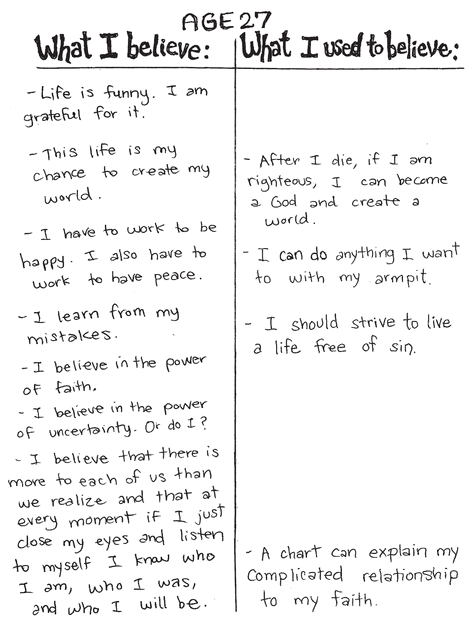 AGE 27
What I believe:
- Life is funny. I am
grateful for it.
- This life is my
chance to create my
world.
- I have to work to be
happy. I also have to
work to have peace.
- I learn from my
mistakes.
- I believe in the power
of faith.
- I believe in the power
of uncertainty. Or do I?
- I believe that there is
more to each of us than
we realize and that at
every moment if I just
close my eyes and listen
to myself I know who
I am, who I was,
and who I will be.
What I used to believe:
- After I die, if I am
righteous, I can become
a God and create a
world.
- I can do anything I want
to with my armpit.
- I should strive to live
a life free of sin.
- A chart can explain my
complicated relationship
to my faith.